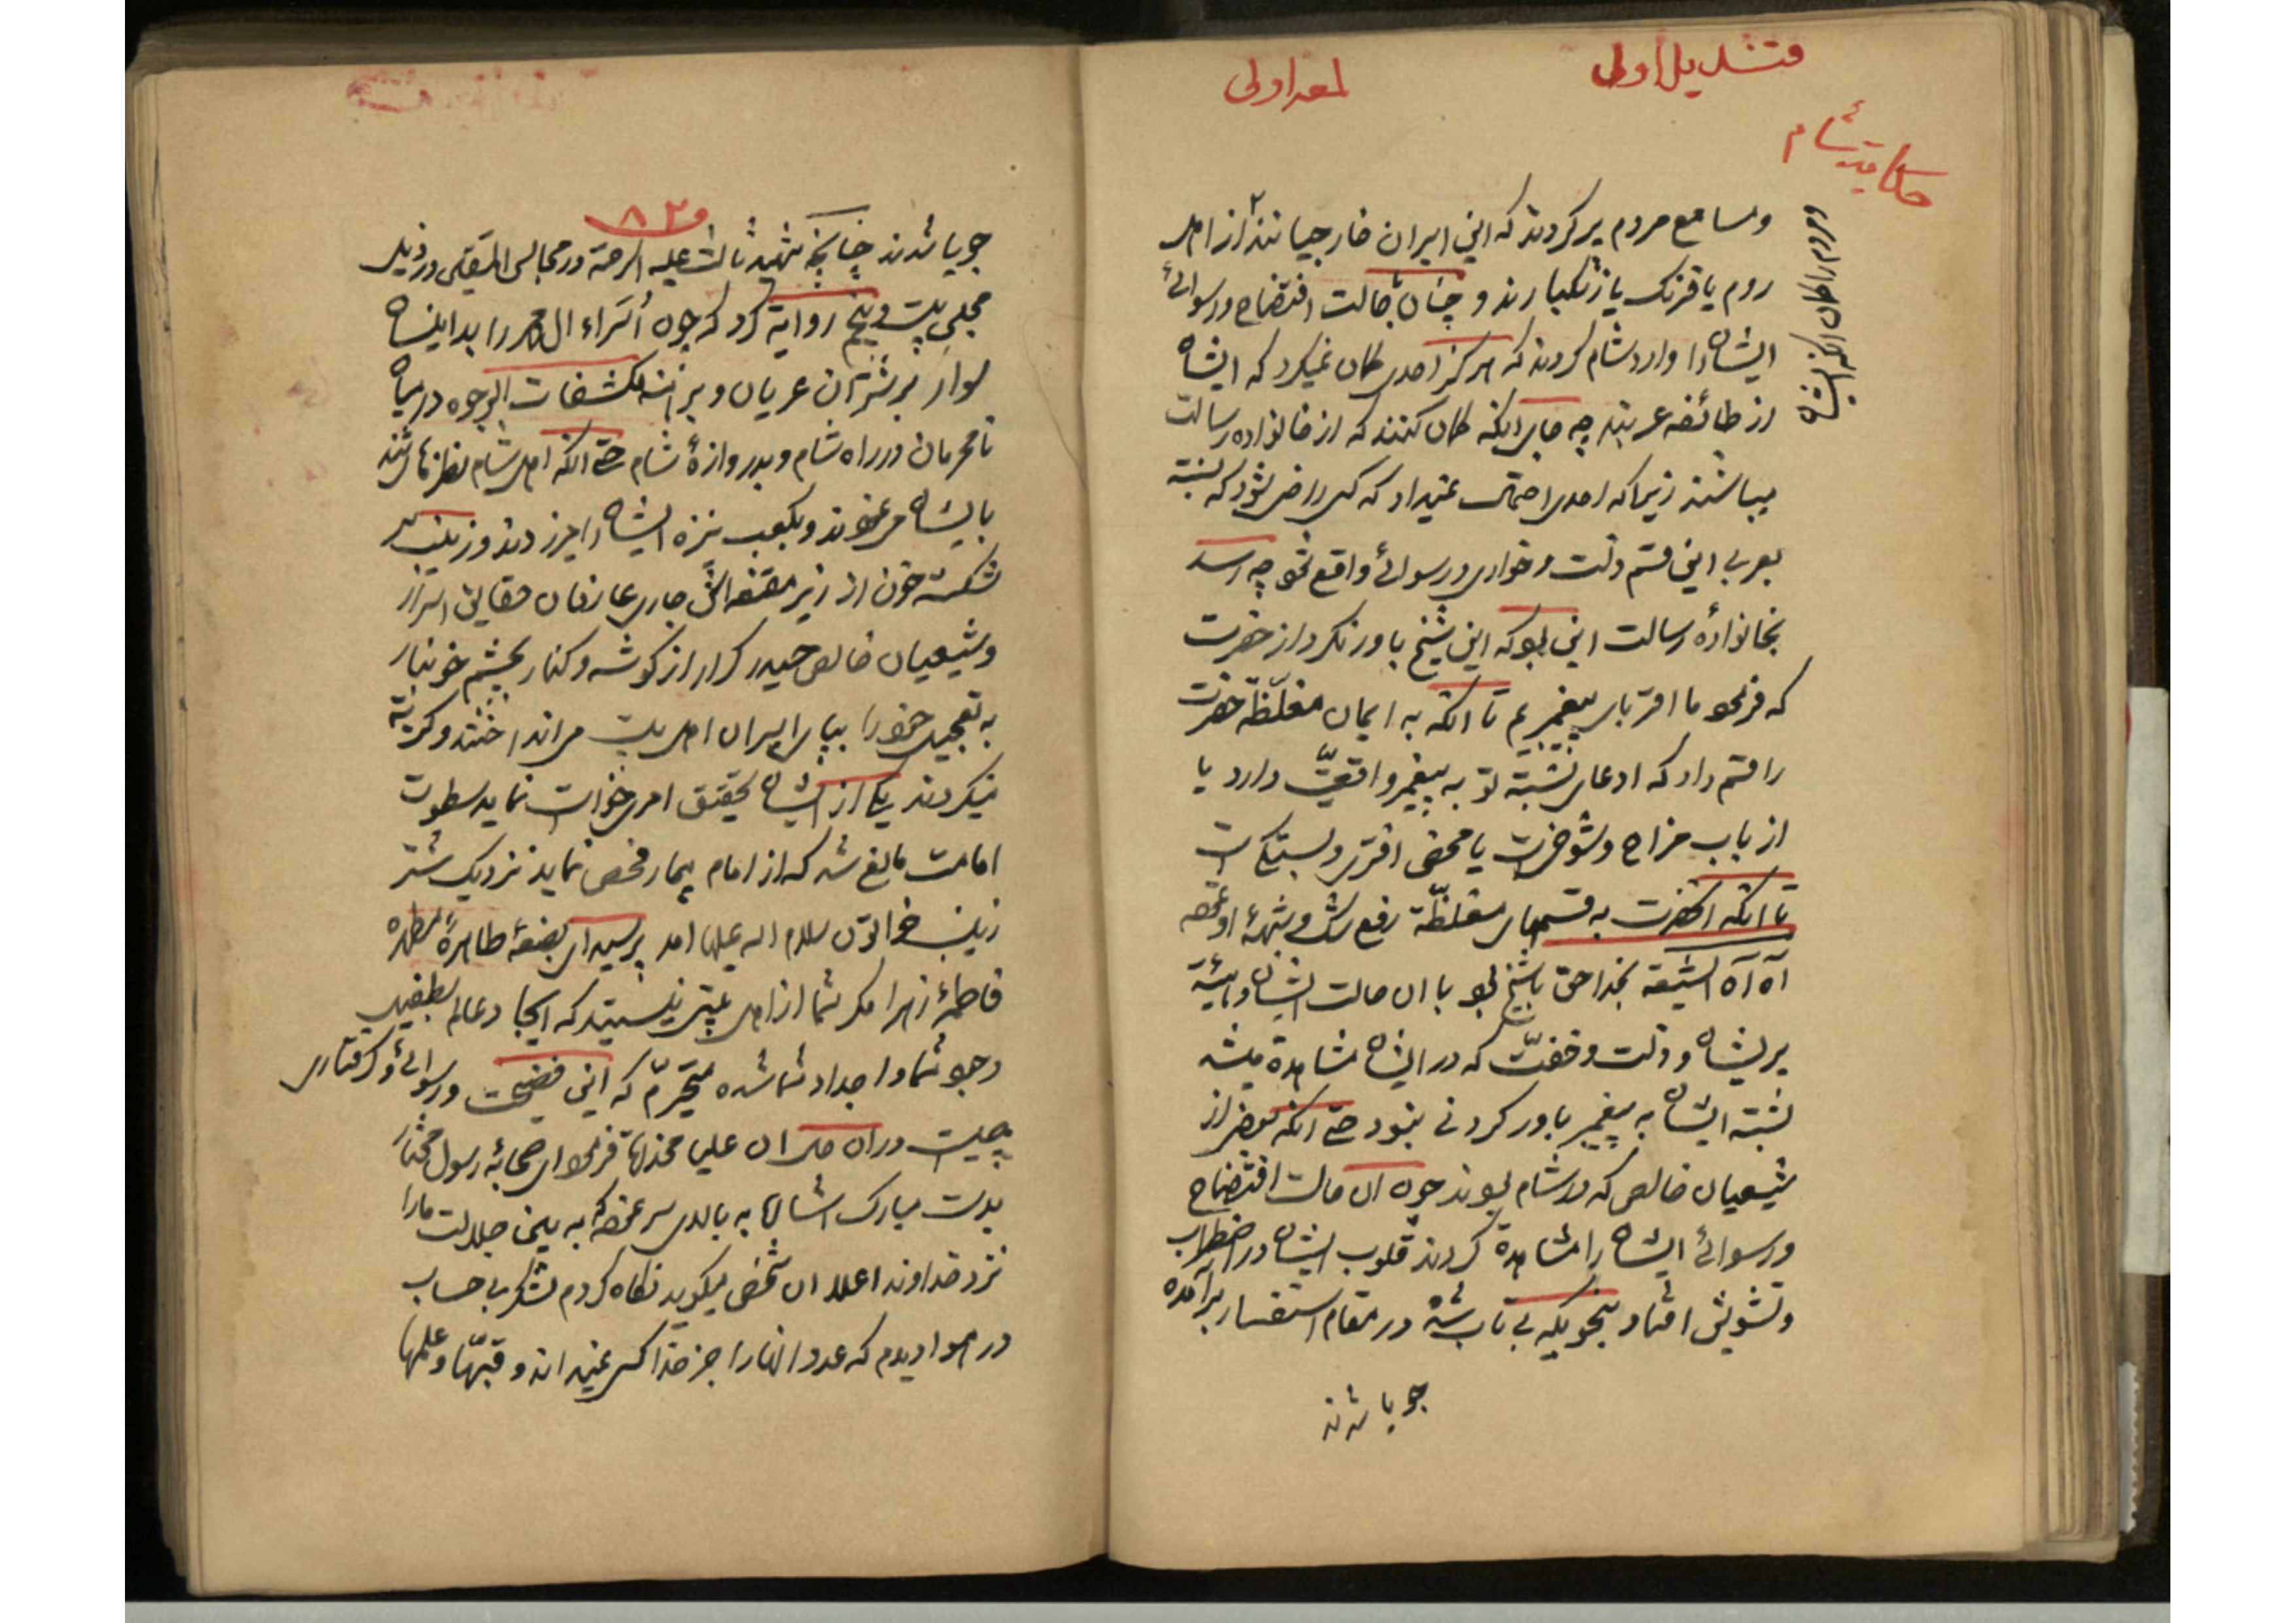 قندیل اولی
لمعه اولی
حکایت شام
و مسامع مردم پر کردند که این اسیران خارجیانند از اهل
و مردم را گمان آنکه ایشان
روم یا فرنک یا زنکبارند و چنان بحالت افتضاح و رسوائی
ایشان را وارد شام کردند که هرکز احدی کمان نمیکرد که ایشان
از طائفه عربند چه جای آنکه کمان کنند که از خانواده رسالت
میباشند زیرا که احدی احتمال نمیداد که کسی راضی شود که نسبت
بعربی این قسم ذلت و خواری و رسوائی واقع شود چه رسد
بخانواده رسالت این بود که این شیخ باور نکرد از حضرت
که فرمود ما اقربای پیغمبریم تا آنکه به ایمان مغلظّه حضرت
را قسم داد که ادعای نسبت تو به پیغمبر واقعیّت دارد یا
از باب مزاح و شوخی است یا محض افتری و بستگی است
تا آنکه آنحضرت به قسمهای مغلظّة رفع شک و شبهۀ او نمود
آه آه الشیعه بخدا حق با شیخ بود با آن حالت ایشان و هیئة
پریشان و ذلت و خفّت که در ایشان مشاهدة میشد
نسبت ایشان به پیغمبر باور کردنی نبود حتی آنکه بعضی از
شیعیان خالص که در شام بودند چون آن حالت افتضاح
و رسوائی ایشان را مشاهدة کردند قلوب ایشان در اضطراب
و تشویش افتاد بنحویکه بی تاب شده در مقام استفسار برآمده
جویا شدند
۸۲
جویا شدند چنانچه شهید ثالث علیه الرحمة در مجالس المتقین در ذیل
مجلس بیست و پنج روایة کرد که چون اُسَراء ال محمد را بدانسان
سوار بر شتران عریان و برهنه مکشفات الوجوه در میان
نامحرمان در راه شام و بدروازۀ شام حتی آنکه اهل شام نظر تماشا
بایشان می نمودند و بکعب نیزه ایشان را میزدند و زینب سر
شکسته خون از زیر مقنعه اش جاری عارفان حقایق اسرار
و شیعیان خالص حیدر کرار از کوشه و کنار بچشم خونبار
به تعجیل خود را بپای اسیران اهل بیت می انداختند و کریه
میکردند یکی از ایشان تحقیق امر خواست نماید سطوت
امامت مانع شد که از امام بیمار فحص نماید نزدیک شتر
زینب خواتون سلام اله علیها امد پرسید ای بضعۀ طاهرۀ مطهره
فاطمۀ زهرا مکر شما از اهل بیتی نیستید که ایجاد عالم بطفیل
وجود شما و اجداد شما شده متحیّرم که این فضیحت و رسوائی و کرفتاری
چیست دران میان علیا مخدره فرمود ای صحابۀ رسول مختار
بدست مبارک اشاره به بالای سر نمود که به بین جلالت مارا
نزد خداوند اعلا ان شخص میکوید نکاه کردم لشکر بی حساب
در هوا دیدم که عدد انها را جز خدا کسی نمیداند و قبّها و علمها